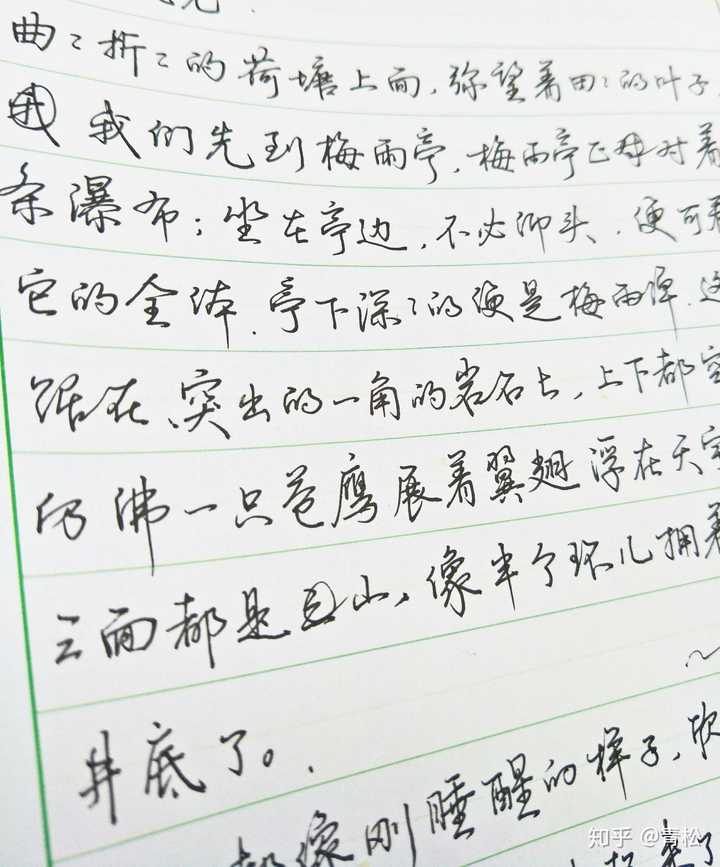 曲々折々的荷塘上面,弥望着田々的叶子,
我们先到梅雨亭,梅雨亭正对着
条瀑布;坐在亭边,不必仰头,便可看
它的全体.亭下深々的便是梅雨潭.这
踞在突出的一角的岩石上,上下都空
仿佛一只苍鹰展着翼翅浮在天空
三面都是山,像半个环儿拥着
井底了。
都像刚睡醒的样子,欣
知乎 @青松